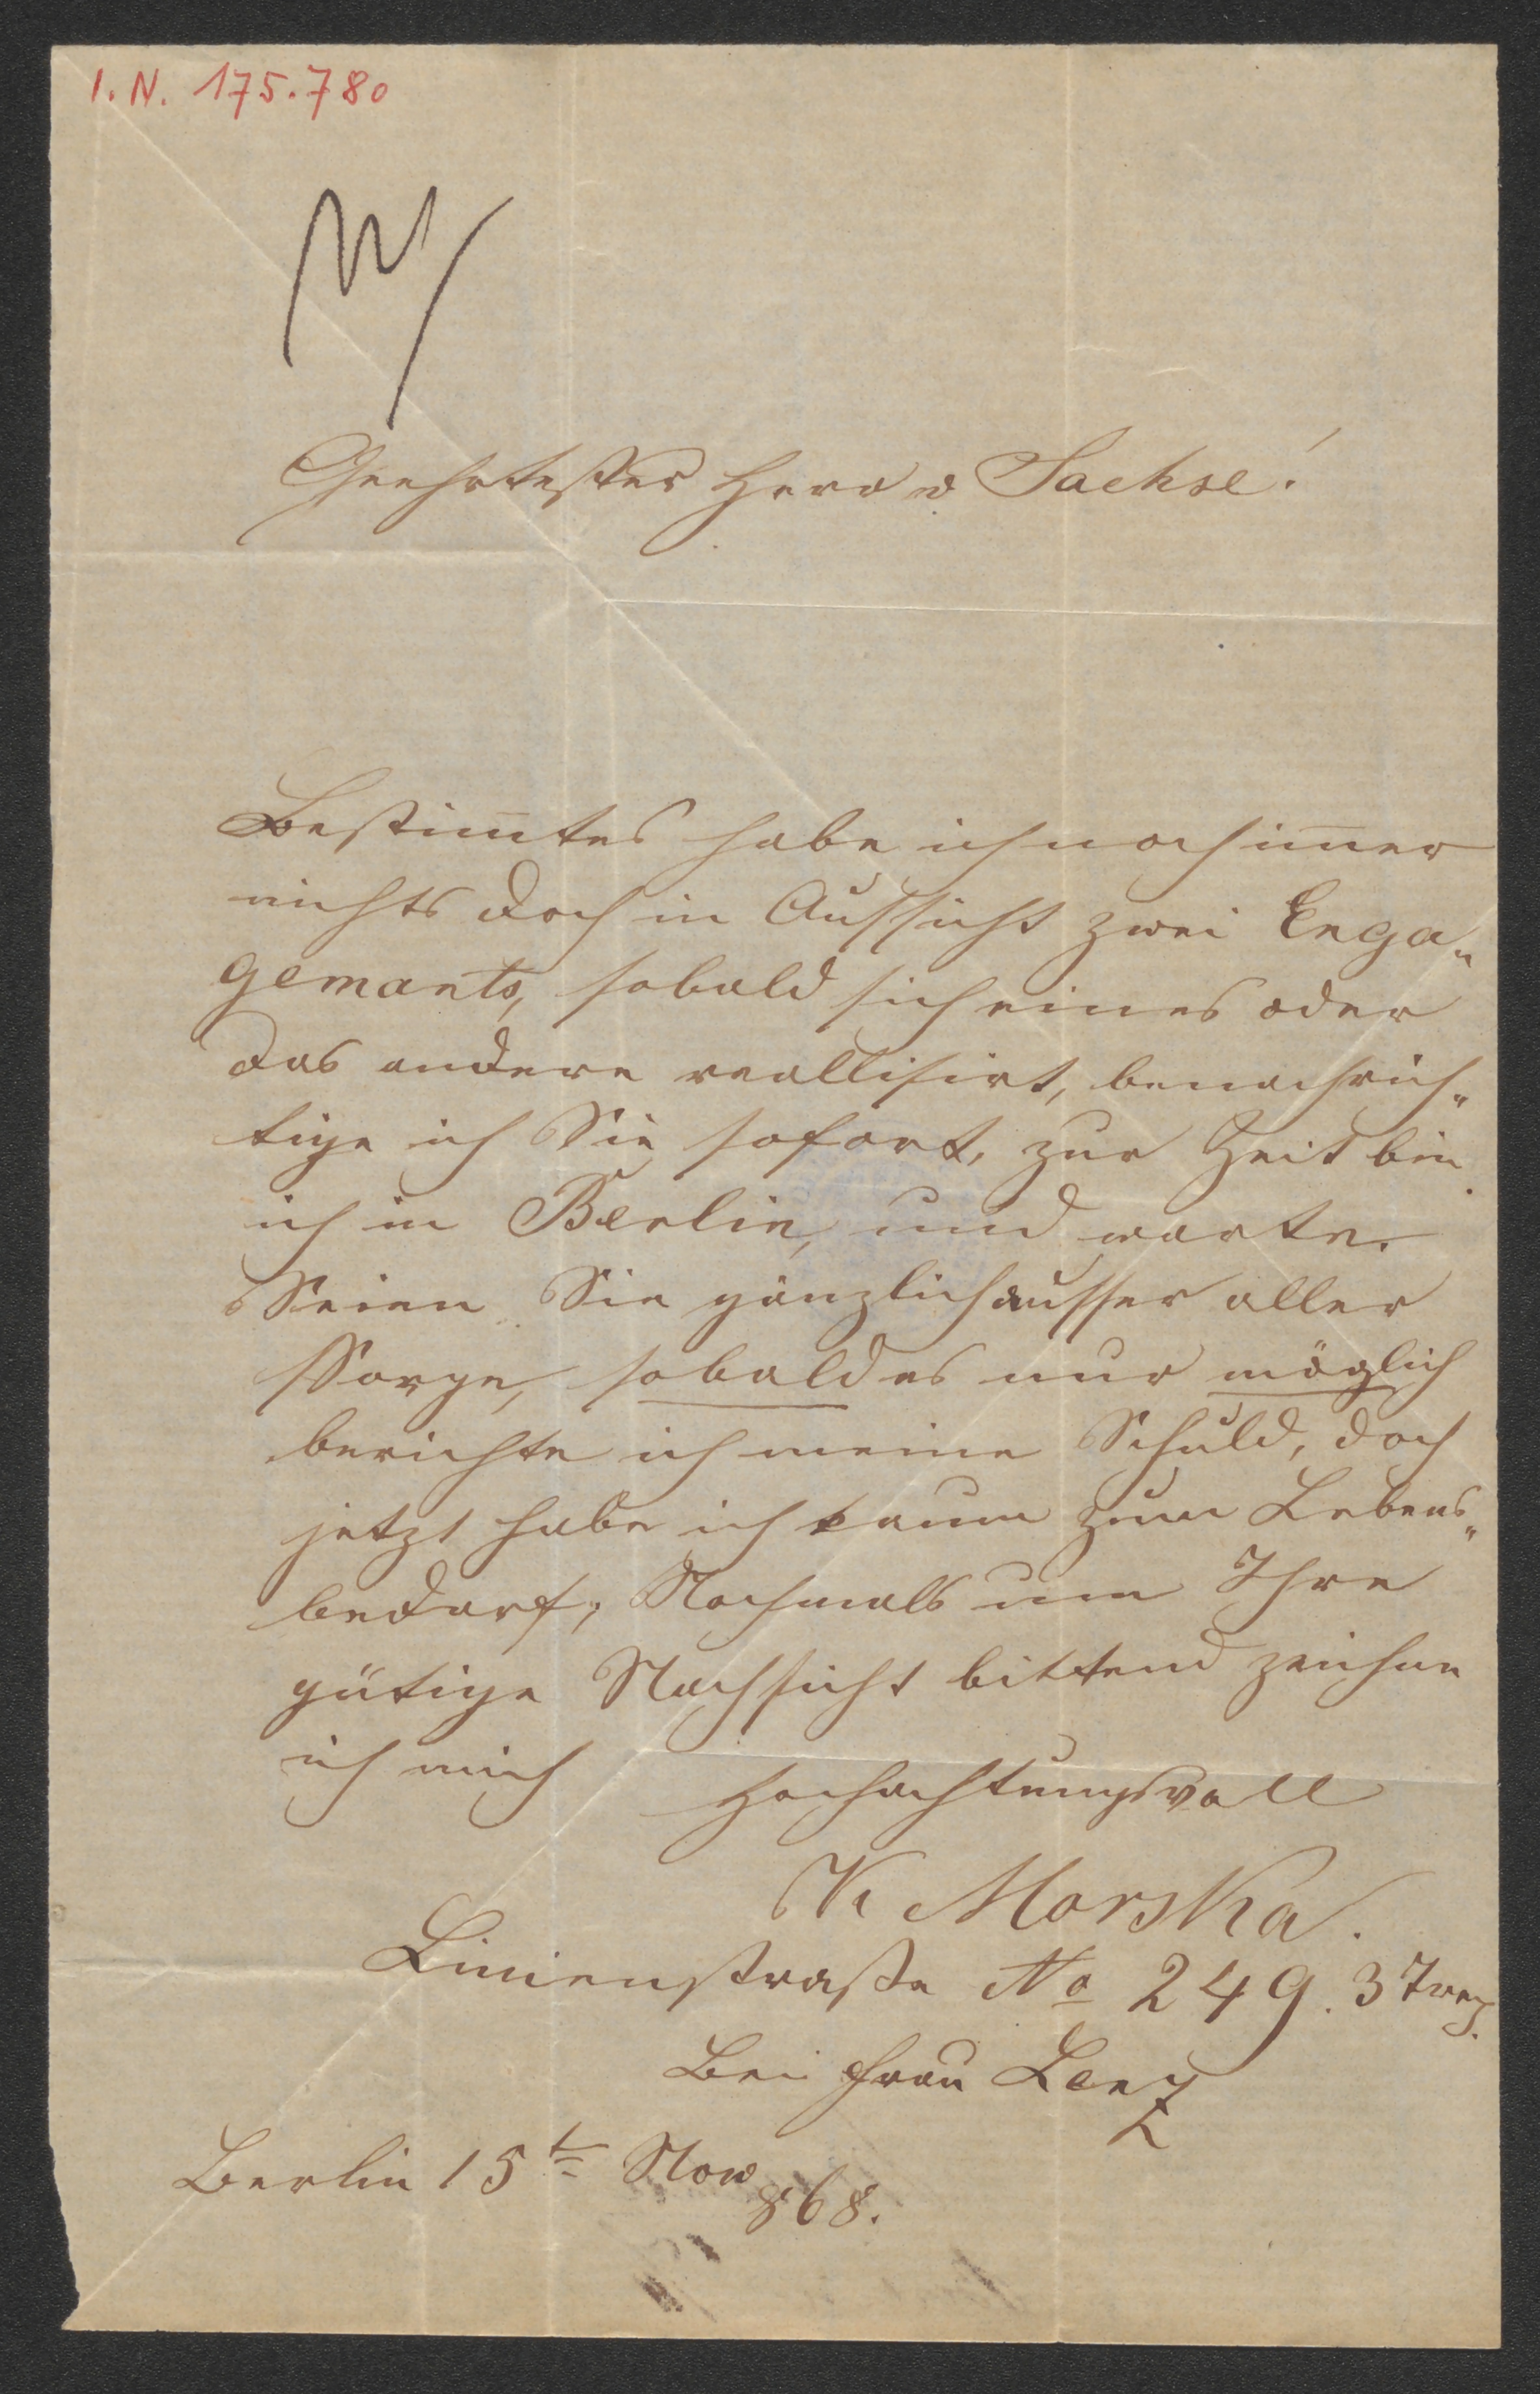 I. N. 175.780
Geehrtester Herr v Sachse!
Bestim̄tes habe ich noch im̄er
nichts doch in Aussicht zwei Enga„
gemants, sobald sich eines oder
das andere reallisirt, benachrich„
tige ich Sie sofort, zur Zeit bin
ich in Berlin, und warte.
Seien Sie gänzlich ausser aller
Sorge, sobald es nur möglich
berichte ich meine Schuld, doch
jetzt habe ich kaum zum Lebens„
bedarf; Nochmals um Ihre
gütige Nachsicht bittend zeichne
ich mich Hochachtungsvoll
K Morska.
Linienstraße No 249. 3 Trep.
Bei Frau
Berlin 15t Nov 868.